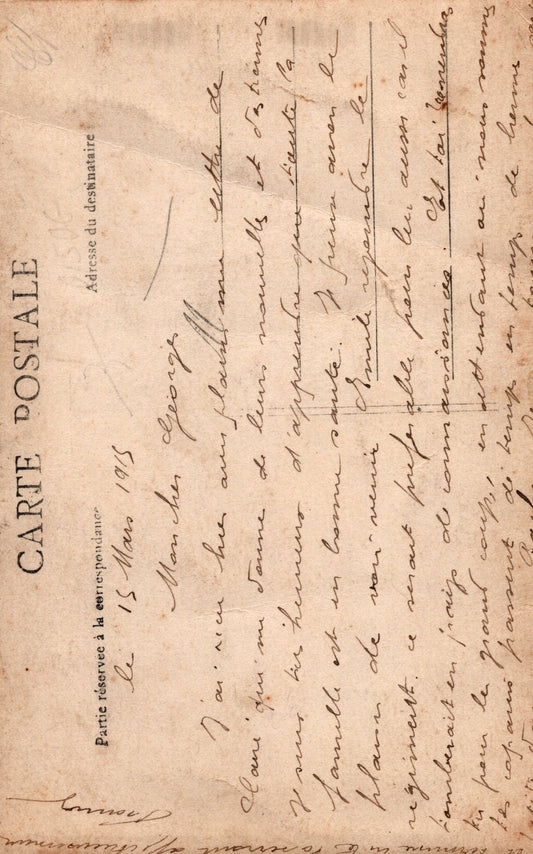 CARTE POSTALE
Partie réservée à la correspondance
Adresse du destinataire
le 15 Mars 1915
Mon cher Georges
J'ai recu hier avec plaisir une lettre de
Claire qui me donne de leurs nouvelles et des tiennes
Je suis très heureux d'apprendre que toute la
famille est en bonne santé. Je pense avoir le
plaisir de voir venir Emile rejoindre le
régiment ce serait préférable pour lui aussi car il
tomberait en pays de connaissances. Et toi
tu pour le grand coup, en attendant où nous sommes
les copains passent de temps en temps
Je termine en te serrant affectueusement